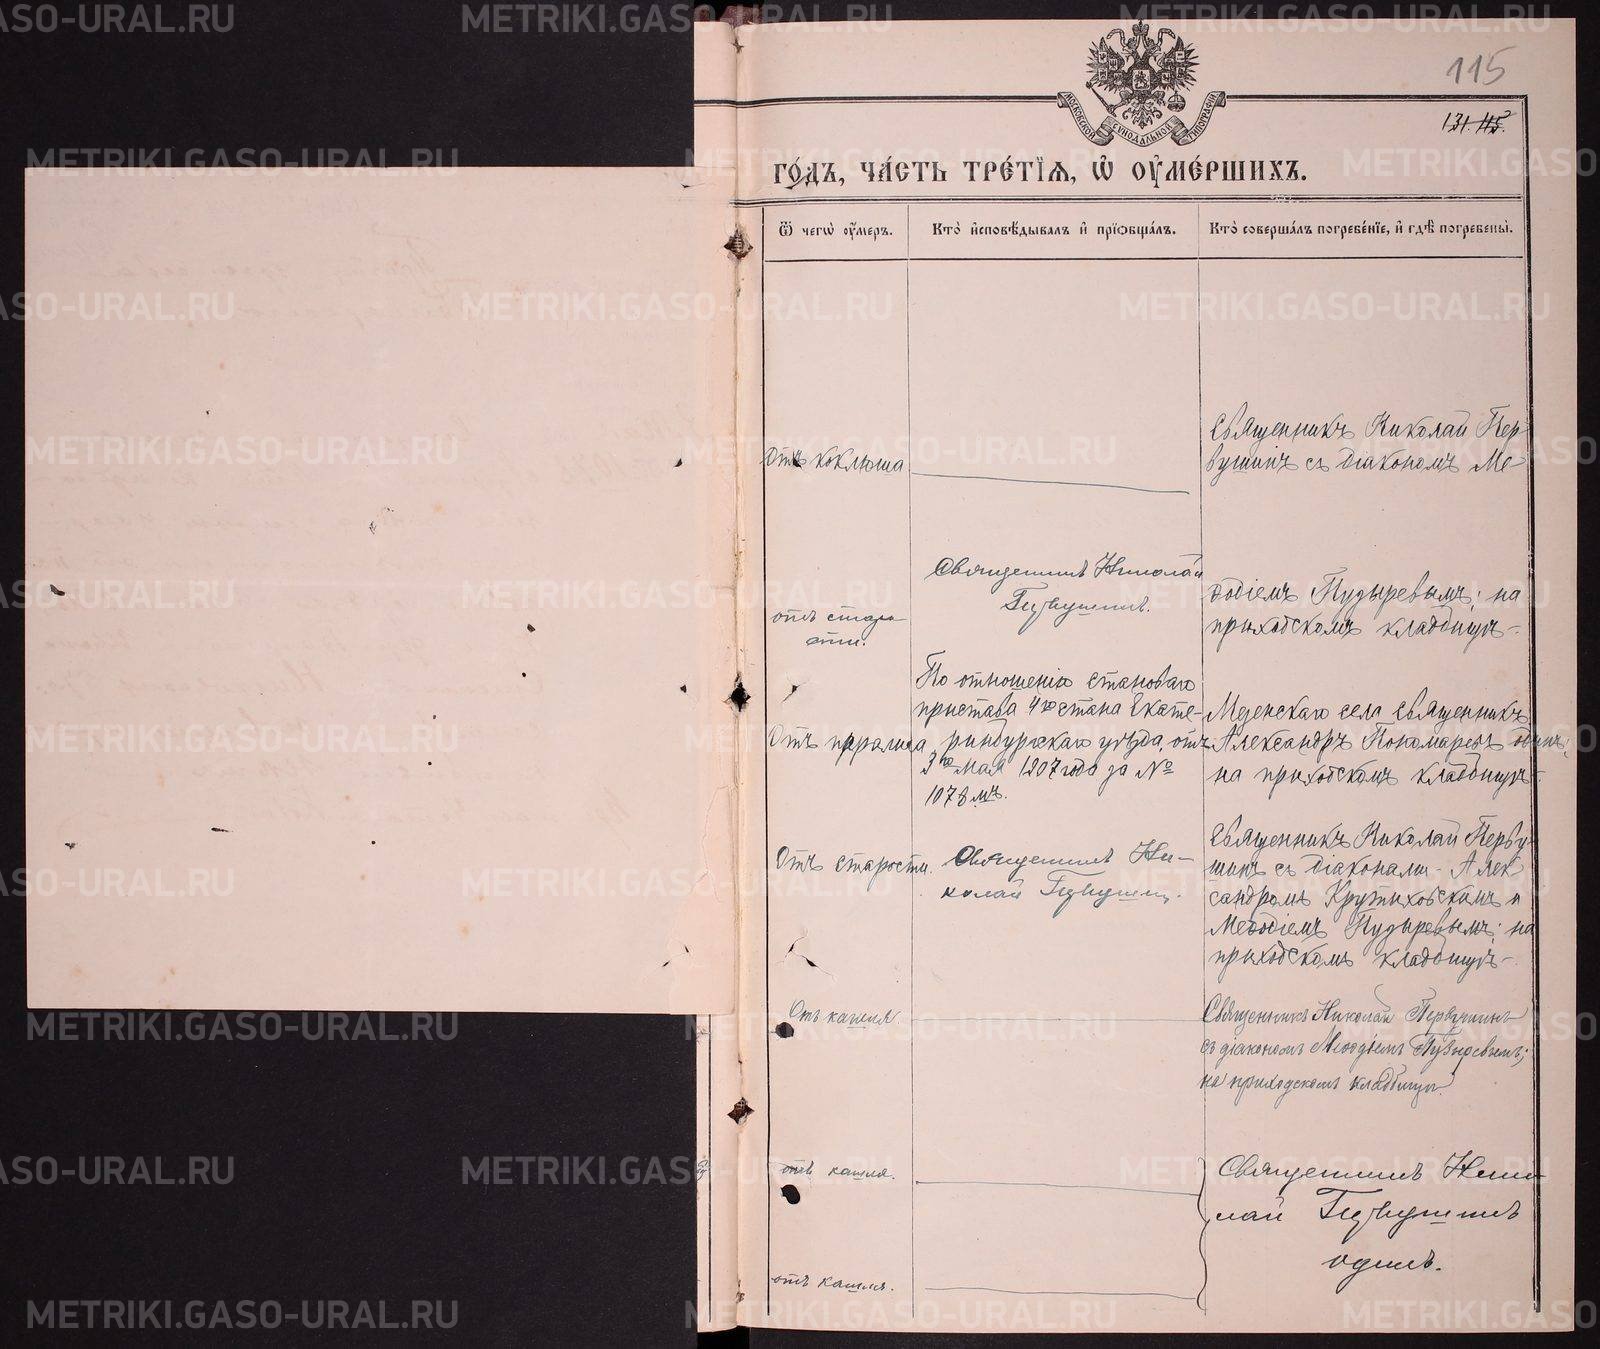 115
МОСКОВСКОЙ СѴНОДАЛЬНОЙ ТИПОГРАФІИ
131. 115.
го́дъ, ча́сть тре́тїѧ, ѡ҆ оу҆ме́ршихъ.
Ѿ чегѡ̀ оу҆́меръ.
Кто̀ и҆сповѣ́дывалъ и҆ прїѡбща́лъ.
Кто̀ соверша́лъ погребе́нїе, и҆ гдѣ̀ погребены̀.
Отъ коклюша
Священникъ Николай Пер-
вушинъ съ діакономъ Ме-
отъ старо-
сти.
Священникъ Николай
Первушинъ.
ѳодіемъ Пузыревымъ; на
приходскомъ кладбищѣ.
Отъ паралича
По отношенію становаго
пристава 4го стана Екате-
ринбургскаго уѣзда, отъ
3го мая 1907 года за №
1078мъ.
Мезенскаго села священникъ
Александръ Пономаревъ одинъ;
на приходскомъ кладбищѣ.
Отъ старости.
Священникъ Ни-
колай Первушинъ.
Священникъ Николай Перву-
шинъ съ діаконами - Алек-
сандромъ Крутиховскимъ и
Меѳодіемъ Пузыревымъ; на
приходскомъ кладбищѣ.
Отъ кашля.
Священникъ Николай Первушинъ
съ діакономъ Меѳодіемъ Пузыревымъ;
на приходскомъ кладбищѣ.
отъ кашля.
Священникъ Нико-
лай Первушинъ
одинъ.
отъ кашля.
METRIKI.GASO-URAL.RU